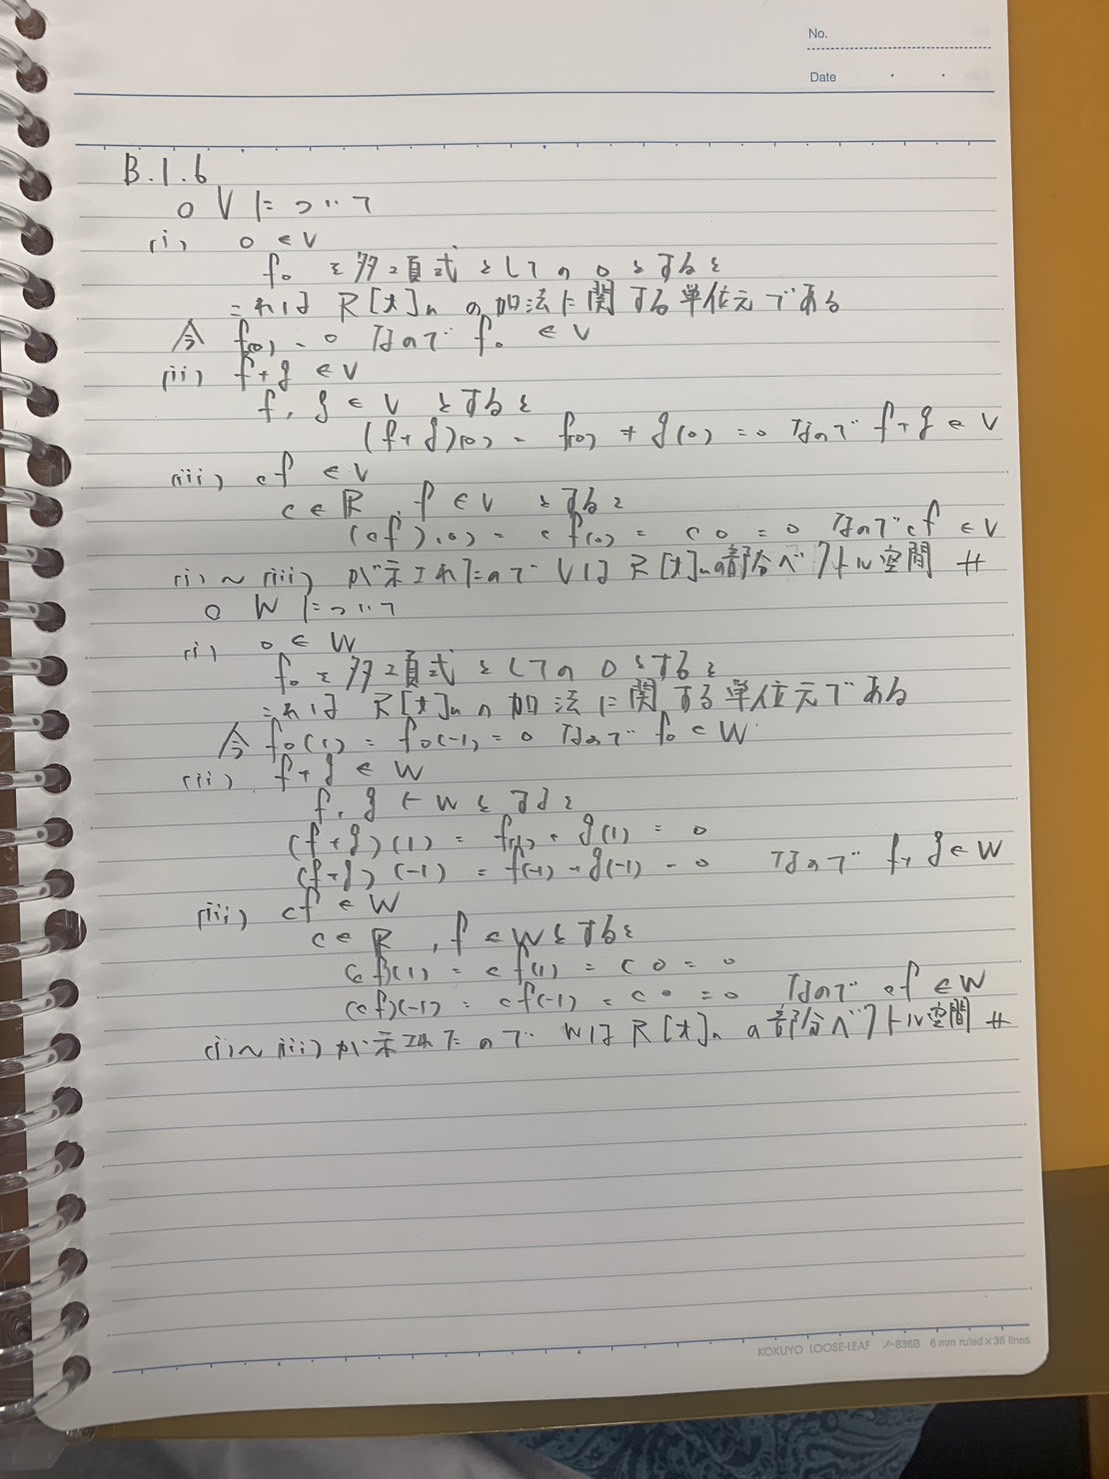 No.
Date
B.1.6
○ Vについて
(i) 0 ∈ V
f₀ を多項式としての0とすると
これは R[x]n の加法に関する単位元である
今 f(0) = 0 なので f₀ ∈ V
(ii) f+g ∈ V
f, g ∈ V とすると
(f+g)(0) = f(0) + g(0) = 0 なので f+g ∈ V
(iii) cf ∈ V
c ∈ R, f ∈ V とすると
(cf)(0) = cf(0) = c0 = 0 なので cf ∈ V
(i)~(iii) が示されたので VはR[x]nの部分ベクトル空間 #
○ Wについて
(i) 0 ∈ W
f₀ を多項式としての0とすると
これは R[x]n の加法に関する単位元である
今 f₀(1) = f₀(-1) = 0 なので f₀ ∈ W
(ii) f+g ∈ W
f, g ∈ W とすると
(f+g)(1) = f(1) + g(1) = 0
(f+g)(-1) = f(-1) + g(-1) = 0 なので f+g ∈ W
(iii) cf ∈ W
c ∈ R, f ∈ Wとすると
(cf)(1) = cf(1) = c0 = 0
(cf)(-1) = cf(-1) = c0 = 0 なので cf ∈ W
(i)~(iii) が示されたので WはR[x]nの部分ベクトル空間 #
KOKUYO LOOSE-LEAF ノ-836B 6 mm ruled×36 lines